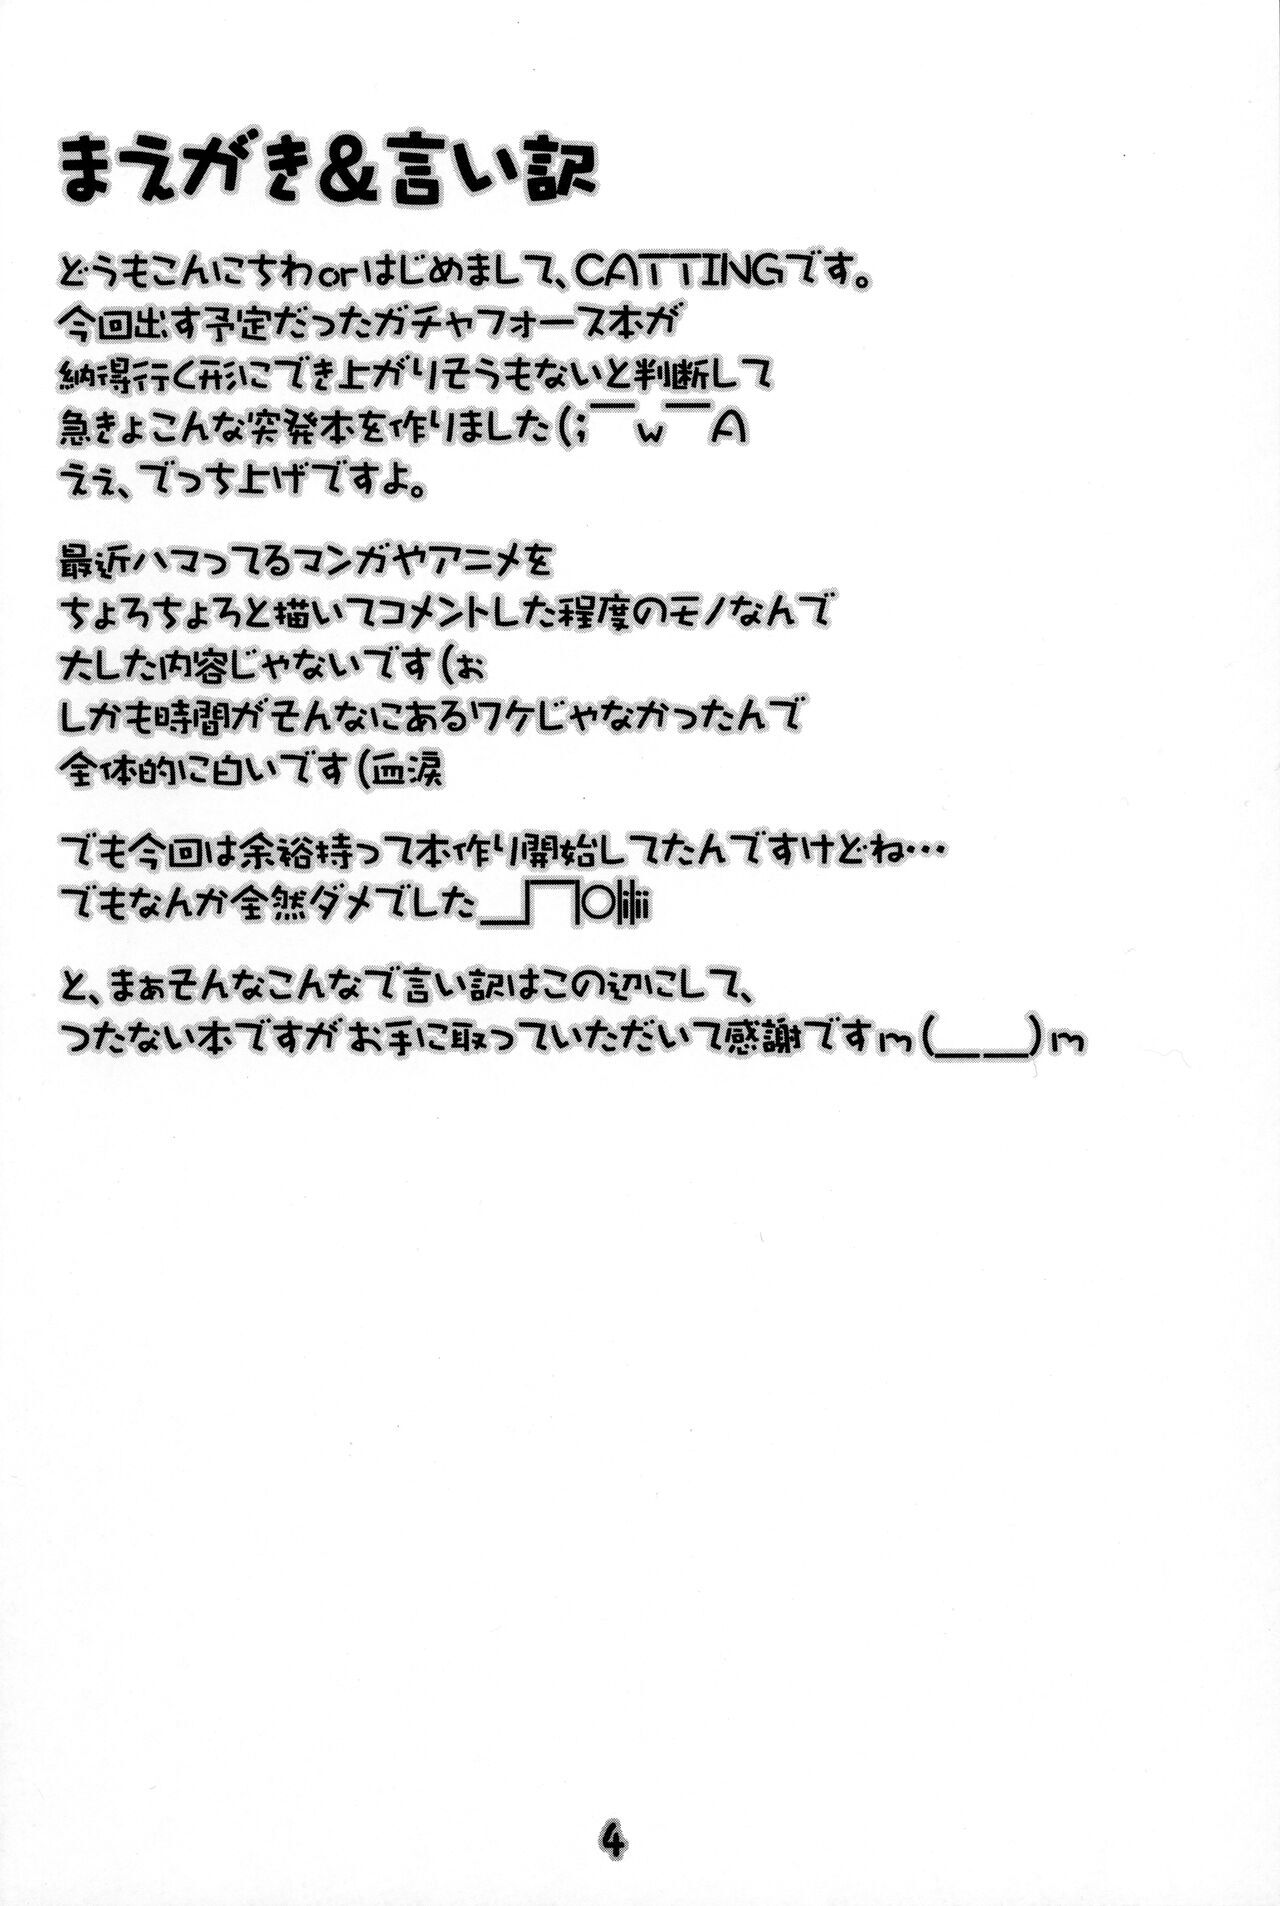 まえがき&言い訳
どうもこんにちわorはじめまして、CATTINGです。
今回出す予定だったガチャフォース本が
納得行く形にでき上がりそうもないと判断して
急きょこんな突発本を作りました(;￣w￣A
ええ、でっち上げですよ。
最近ハマってるマンガやアニメを
ちょろちょろと描いてコメントした程度のモノなんで
大したた内容じゃないです(ぉ
しかも時間がそんなにあるワケじゃなかったんで
全体的に白いです(血涙
でも今回は余裕持って本作り開始してたんですけどね…
でもなんか全然ダメでした＿|￣|○|li|ii
と、まぁそんなこんなで言い訳はこの辺にして、
つたない本ですがお手に取っていただいて感謝ですm(＿ ＿)m
4